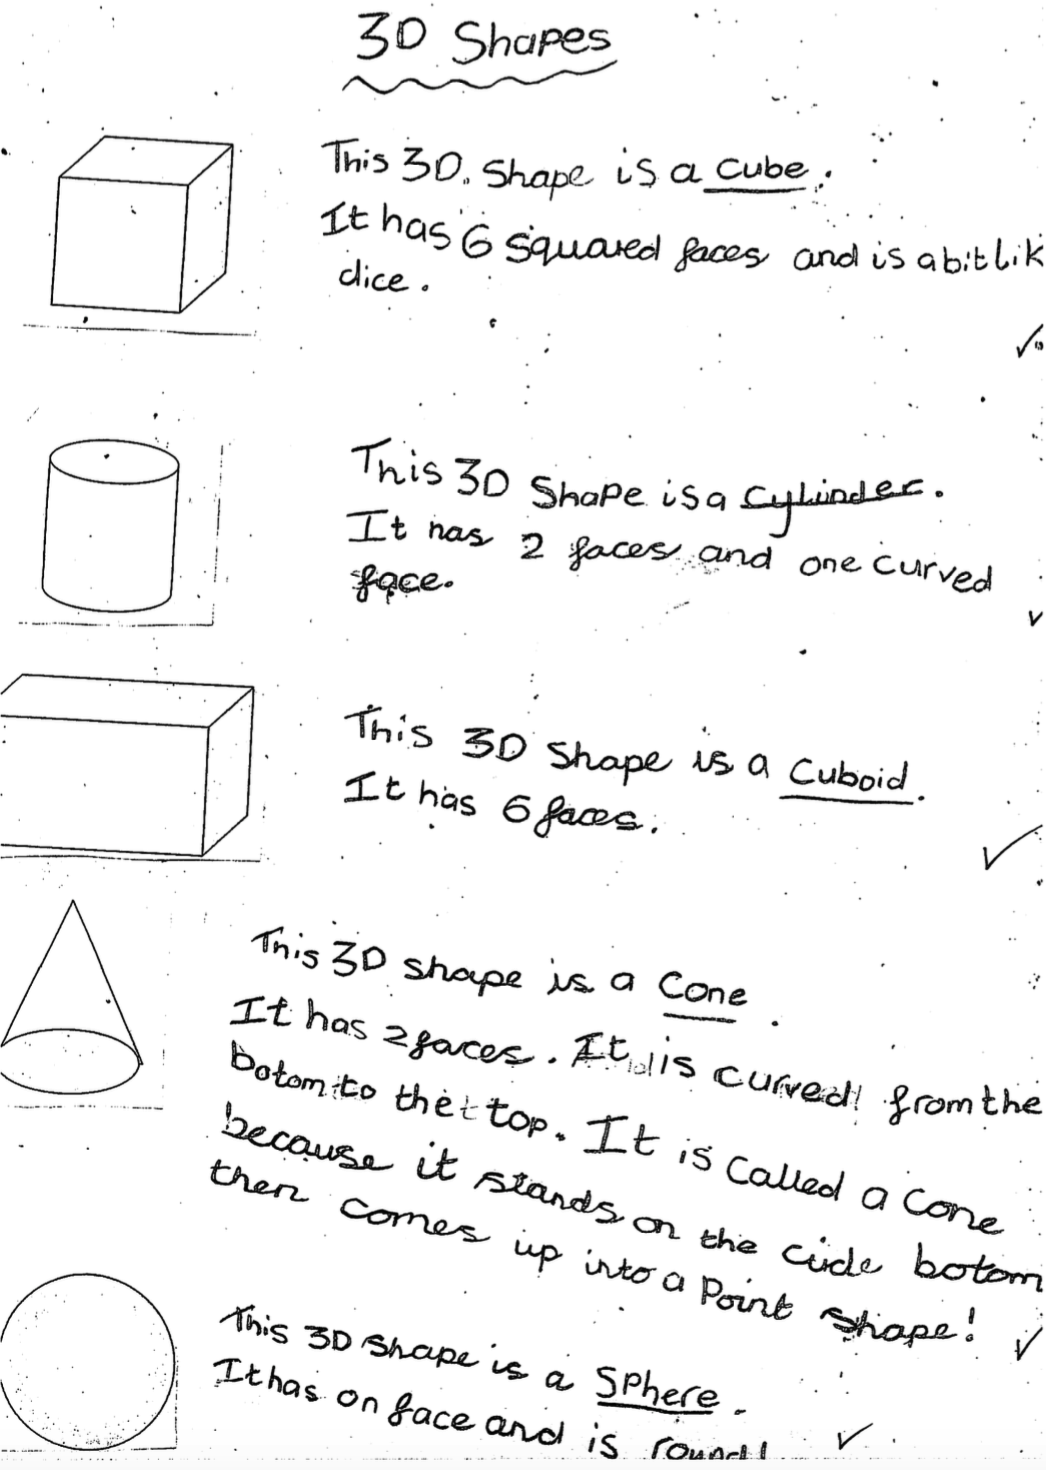 3D Shapes
This 3D. Shape is a Cube.
It has 6 squared faces and is a bit lik
dice.
This 3D Shape is a Cylinder.
It has 2 faces and one curved
face.
This 3D Shape is a Cuboid.
It has 6 faces.
This 3D shape is a Cone.
It has 2 faces. It is curved from the
botom to the top. It is Called a Cone
because it stands on the circle botom
then comes up into a Point shape!
This 3D Shape is a Sphere.
It has on face and is round!